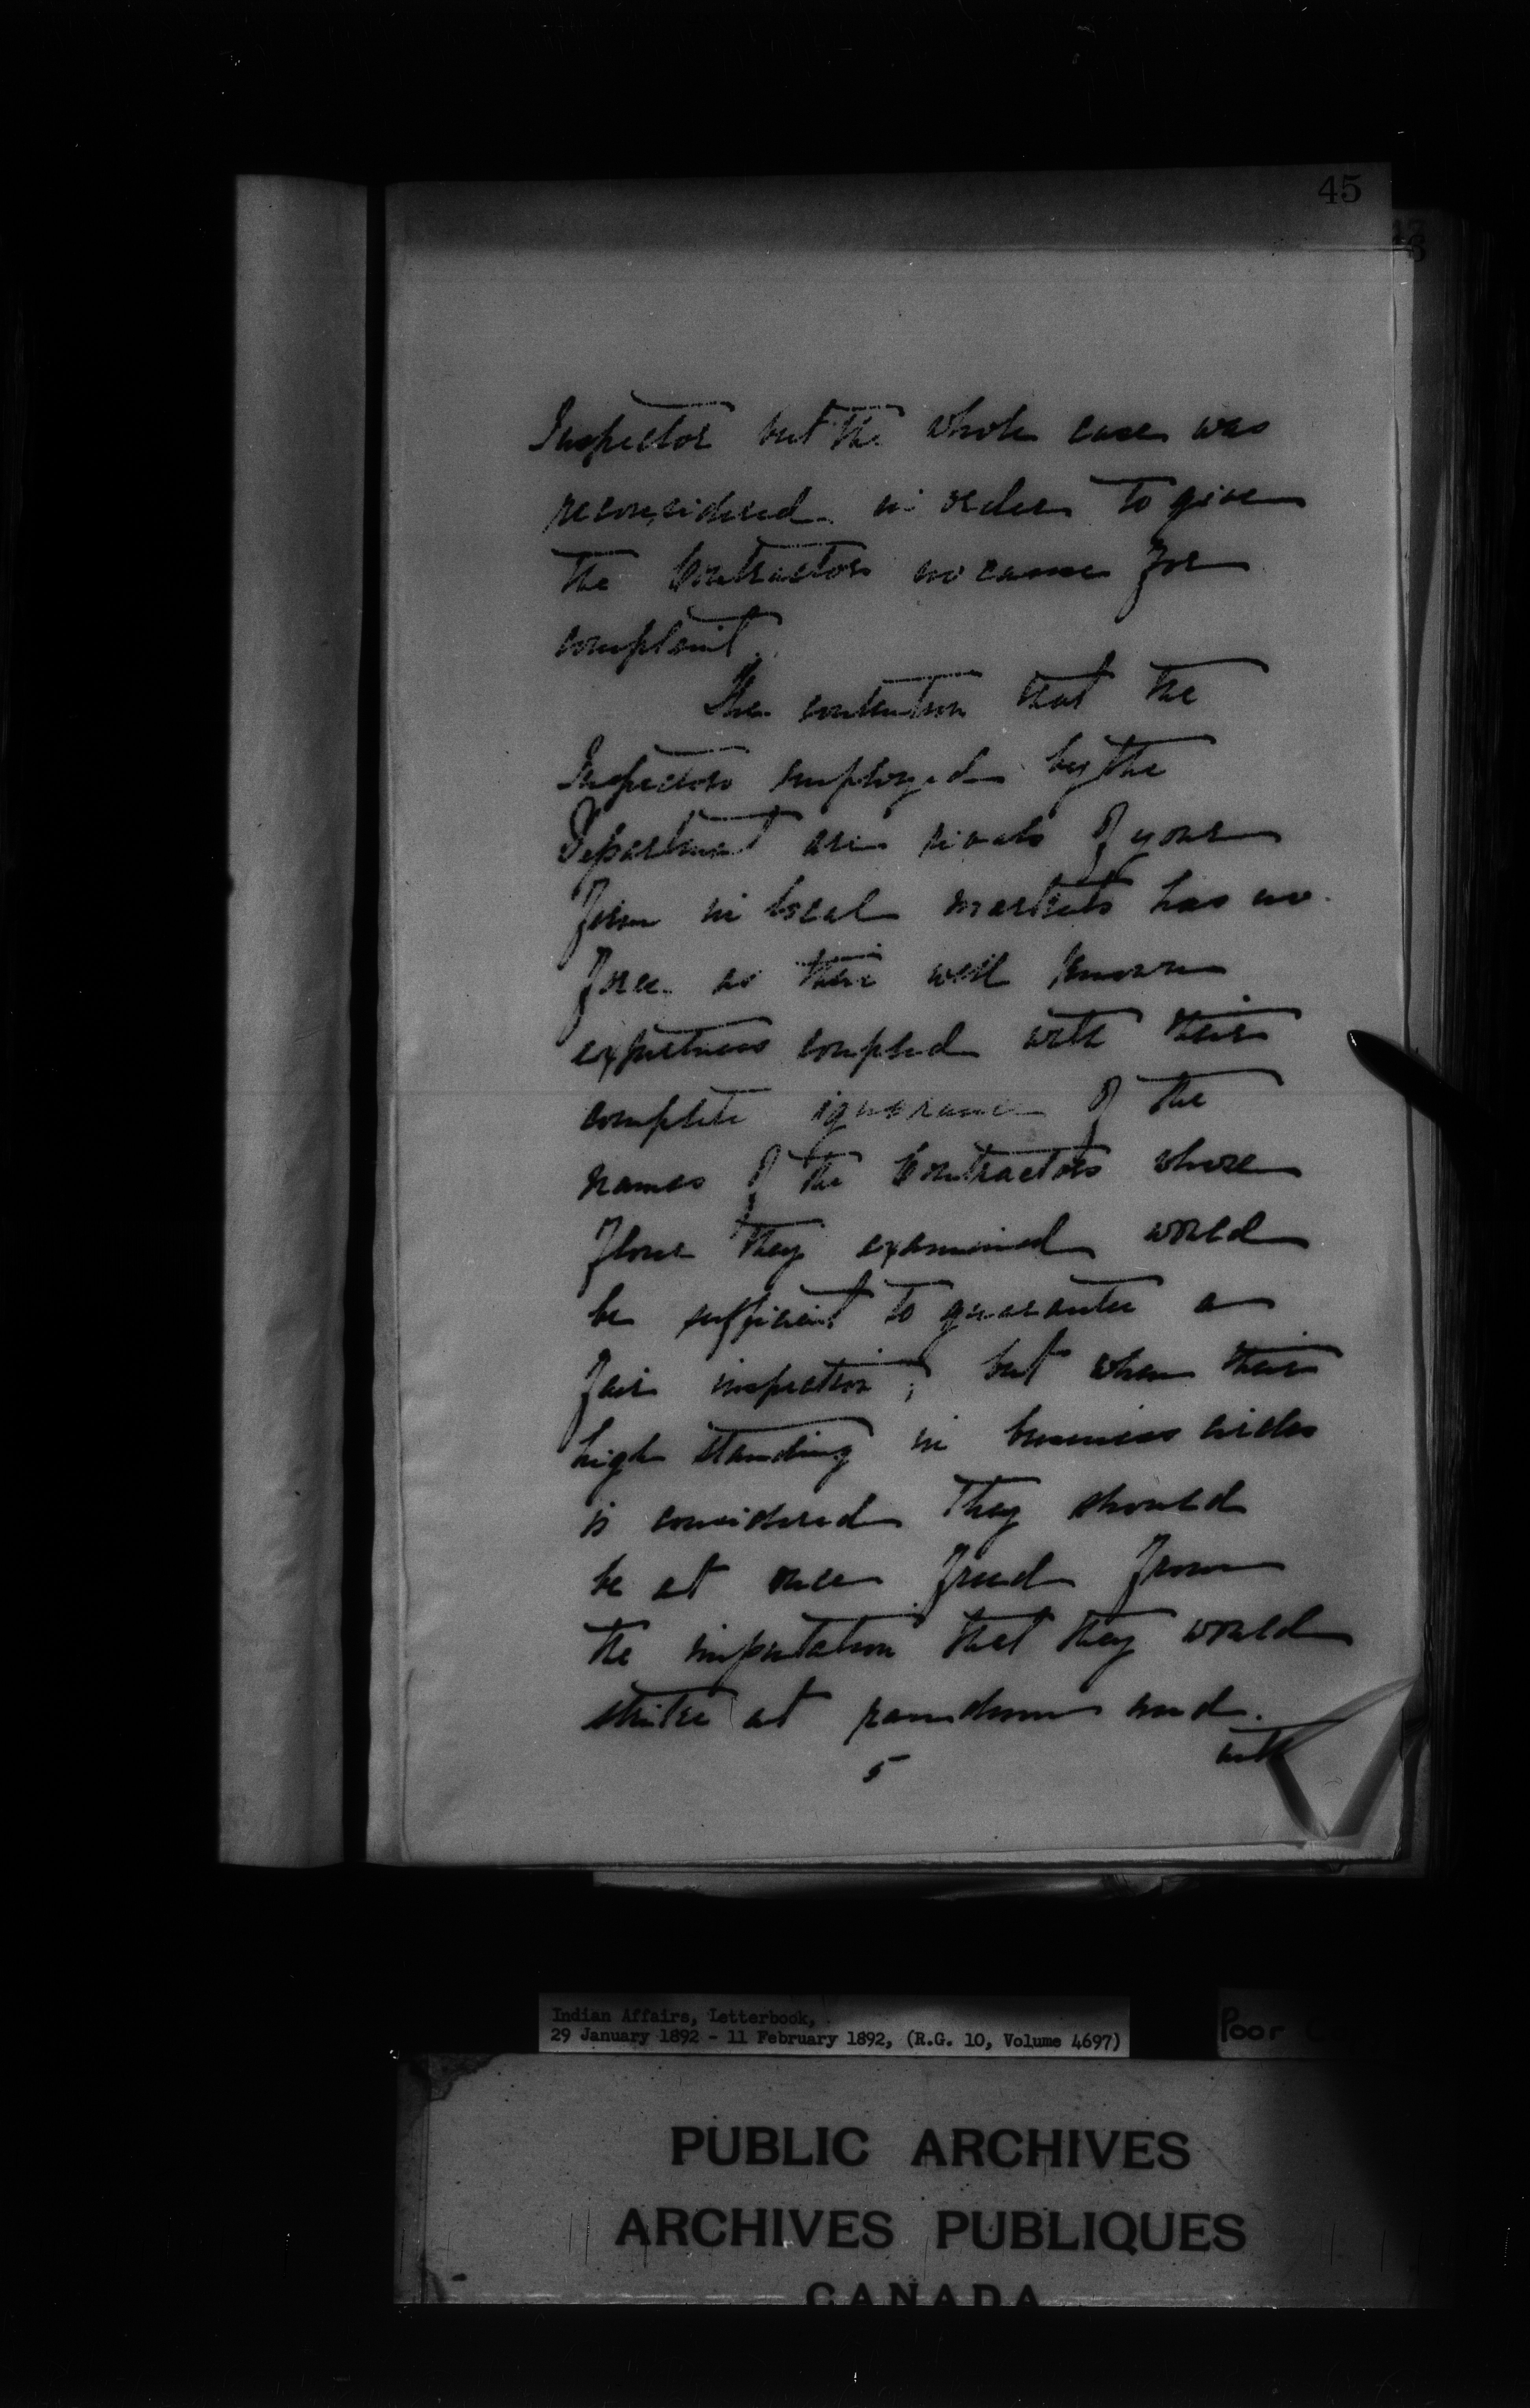 45
Inspector but the whole case was
reconsidered in order to give
the Contractors no cause for
complaint.
The contention that the
Inspectors employed by the
Department are rivals of your
firm in local markets has no
force as their well known
expertness coupled with their
complete ignorance of the
names of the Contractors whose
flour they examined would
be sufficient to guarantee a
fair inspection; but when their
high standing in business circles
is considered they should
be at once freed from
the imputation that they would
strike at random and
5 with
Indian Affairs, Letterbook,
29 January 1892 - 11 February 1892, (R.G. 10, Volume 4697)
Poor
PUBLIC ARCHIVES
ARCHIVES PUBLIQUES
CANADA